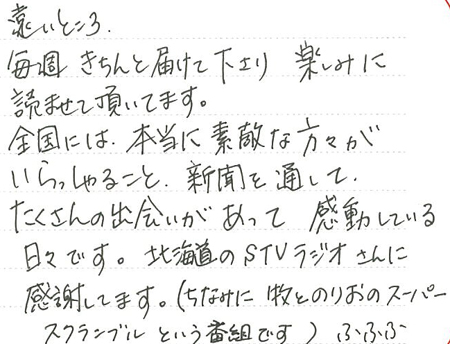 遠いところ、
毎週 きちんと届けて下さり 楽しみに
読ませて頂いてます。
全国には、本当に素敵な方々が
いらっしゃること、新聞を通して、
たくさんの出会いがあって 感動している
日々です。北海道のSTVラジオさんに
感謝してます。(ちなみに 牧とのりおのスーパー
スクランブル という番組です) ふふふ